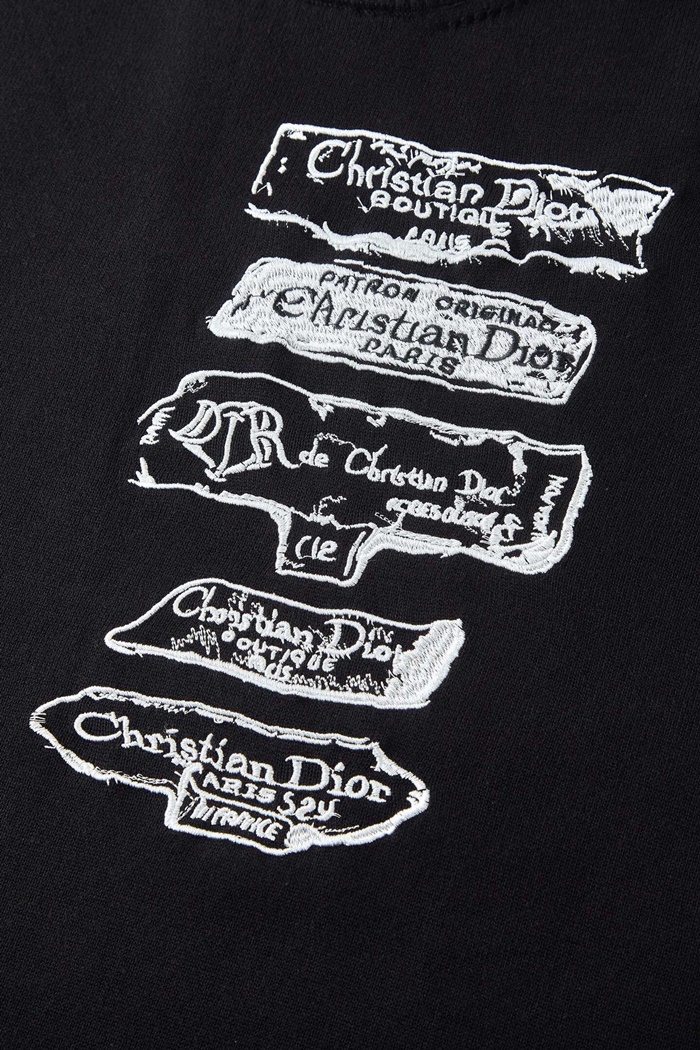 Christian Dior
BOUTIQUE
PARIS
PATRON ORIGINAL
Christian Dior
PARIS
DIR
de Christian Dior
Christian Dior
BOUTIQUE
Christian Dior
PARIS S24